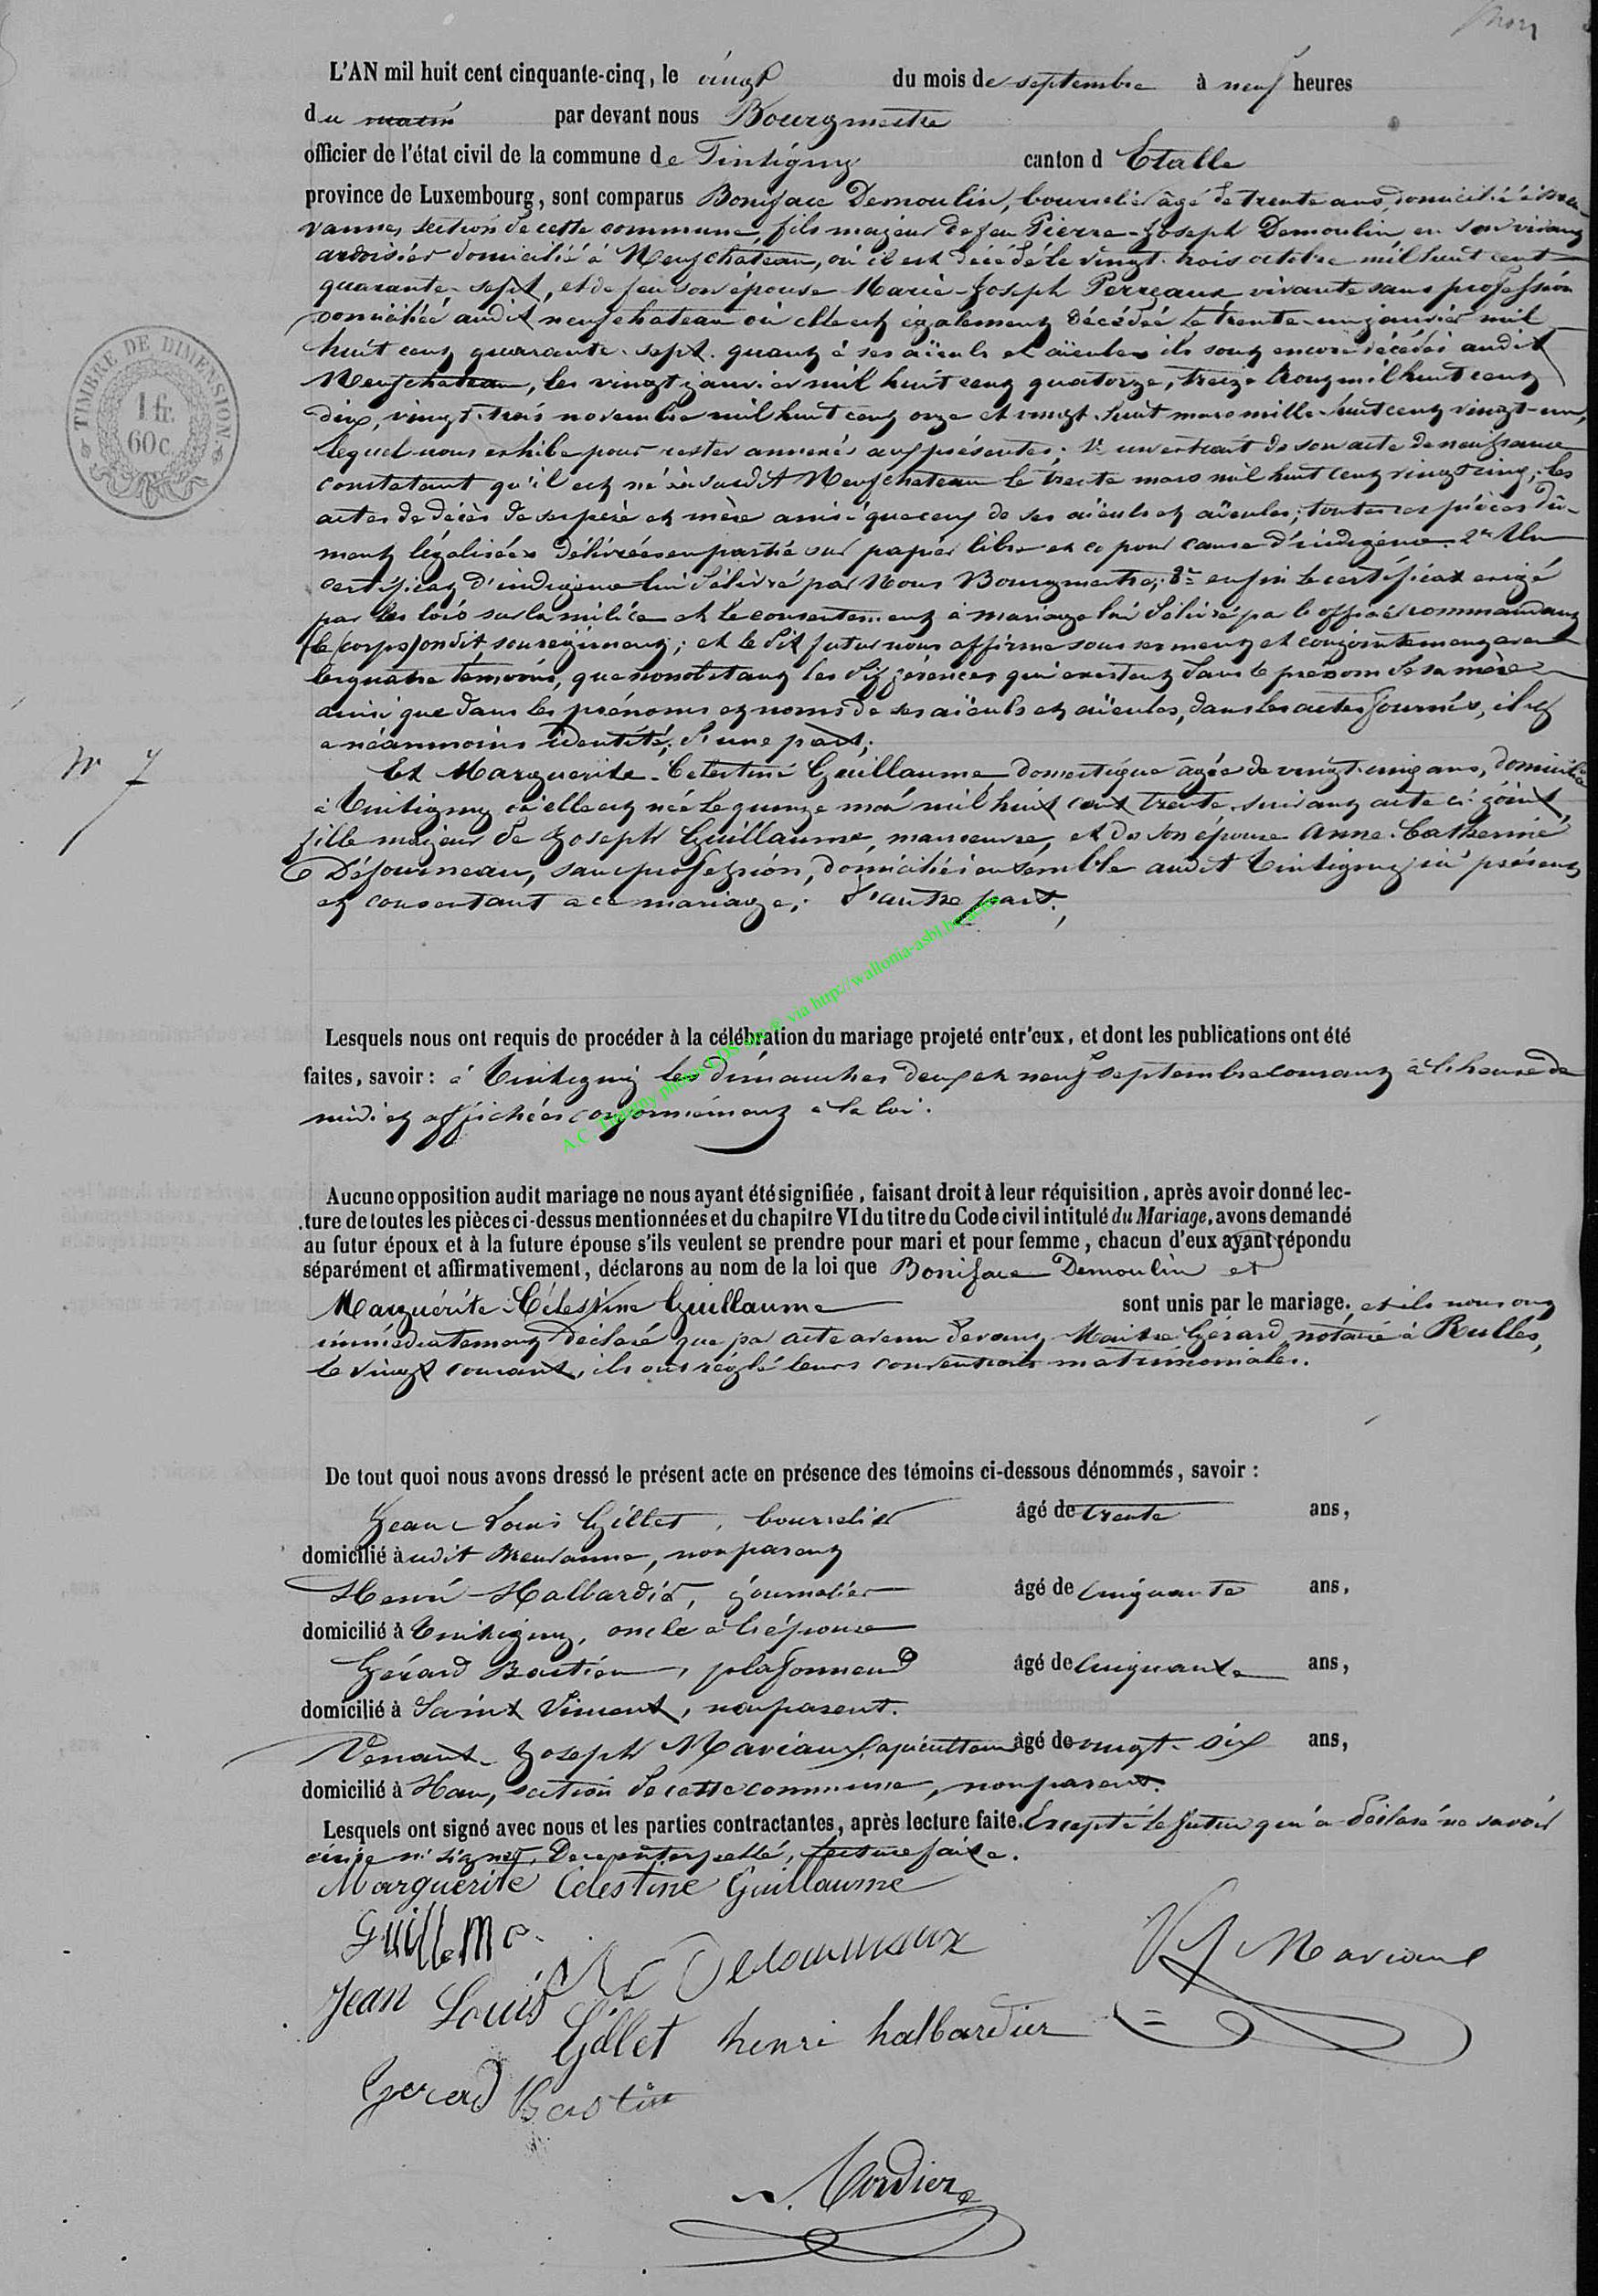 L'AN mil huit cent cinquante-cinq, le vingt du mois de septembre à neuf heures
du matin par devant nous Bourgmestre
officier de l'état civil de la commune de Tintigny canton d Etalle
province de Luxembourg, sont comparus Boniface Demoulin, bourrelier âgé de trente ans, domicilié à Breu-
vanne, section de cette commune, fils majeur de feu Pierre-Joseph Demoulin en son vivant
ardoisier domicilié à Neufchateau, où il est décédé le vingt-trois octobre mil huit cent
quarante-sept, et de feu son épouse Marie-Joseph Perreaux vivante sans profession
domiciliée audit neufchateau où elle est également décédée le trente-un janvier mil
huit cent quarante-sept. quant à ses aïeuls et aïeules ils sont encore décédés audit
Neufchateau, les vingt janvier mil huit cent quatorze, treize mil huit cent
dix, vingt-trois novembre mil huit cent onze et vingt-huit mars mille-huit cent vingt-un,
lequel nous exhibe pour rester annexés aux présentes; 1° un extrait de son acte de naissance
constatant qu'il est né à susdit Neufchateau le trente mars mil huit cent vingt cinq; les
actes de décès de ses père et mère ainsi que ceux de ses aïeuls et aïeules; toutes ces pièces dû-
ment légalisées délivrées en partie sur papier libre et ce pour cause d'indigence. 2° Un
certificat d'indigence lui délivré par Nous Bourgmestre; 3° enfin le certificat exigé
par les lois sur la milice et le consentement à mariage lui délivré par l'officier commandant
le corps ondit son régiment; et le dit futur nous affirme sous serment et conjointement avec
les quatre témoins, que nonobstant les différences qui existent dans le prénom de sa mère
ainsi que dans les prénoms et noms de ses aïeuls et aïeules, dans les actes fournis, il y
a néanmoins identité; d'une part;
N° 7
Et Marguerite-Celestine Guillaume, domestique âgée de vingt-cinq ans, domiciliée
à Tintigny où elle est née le quinze mai mil huit cent trente, suivant acte ci-joint,
fille majeur de Joseph Guillaume, manoeuvre, et de son épouse Anne-Catherine
Déjourneau, sans profession, domiciliés ensemble audit Tintigny ici présents
et consentant à ce mariage; d'autre part;
Lesquels nous ont requis de procéder à la célébration du mariage projeté entr'eux, et dont les publications ont été
faites, savoir: à Tintigny les dimanches deux et neuf septembre courant à l'heure de
midi et affichées conformément à la loi.
Aucune opposition audit mariage ne nous ayant été signifiée, faisant droit à leur réquisition, après avoir donné lec-
ture de toutes les pièces ci-dessus mentionnées et du chapitre VI du titre du Code civil intitulé du Mariage, avons demandé
au futur époux et à la future épouse s'ils veulent se prendre pour mari et pour femme, chacun d'eux ayant répondu
séparément et affirmativement, déclarons au nom de la loi que Boniface Demoulin et
Marguérite-Célestine Guillaume sont unis par le mariage. et ils nous ont
immédiatement déclaré que par acte avenu devant Maitre Gérard, notaire à Rulles,
le vingt courant, ils ont réglé leurs conventions matrimoniales.
De tout quoi nous avons dressé le présent acte en présence des témoins ci-dessous dénommés, savoir:
Jean-Louis Gillet, bourrelier âgé de trente ans,
domicilié à udit Breuvanne, non parent
Henri Halbardier, journalier âgé de cinquante ans,
domicilié à Tintigny, oncle à l'épouse
Gérard Bastien, plafonneur âgé de cinquante ans,
domicilié à Saint Vincent, non parent.
Venant-Joseph Maviaux, agriculteur âgé de vingt-six ans,
domicilié à Han, section de cette commune, non parent.
Lesquels ont signé avec nous et les parties contractantes, après lecture faite. Excepté le futur qui a déclaré ne savoir
écrire ni signer, De ce interpellé, lecture faite.
Marguerite Celestine Guillaume
VJ Maviaux
Jean Louis Gillet henri halbardier
Gerard Bastin
Cordier
TIMBRE DE DIMENSION.
1 fr.
60 c.